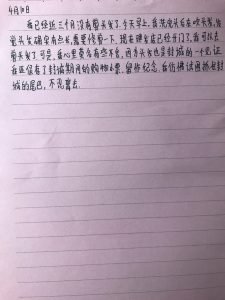 4月10日
我已经近三个月没有剪头发了。今天早上，我洗完头后在吹头发，发
觉头发确实有点长，需要修剪一下。现在理发店已经开门了，我可以去
剪头发了。可是，我心里竟会有些不舍，因为头发也是封城的一个见证
我还保存了封城期间的购物小票，留作纪念。我仿佛试图抓住封
城的尾巴，不忍离去。